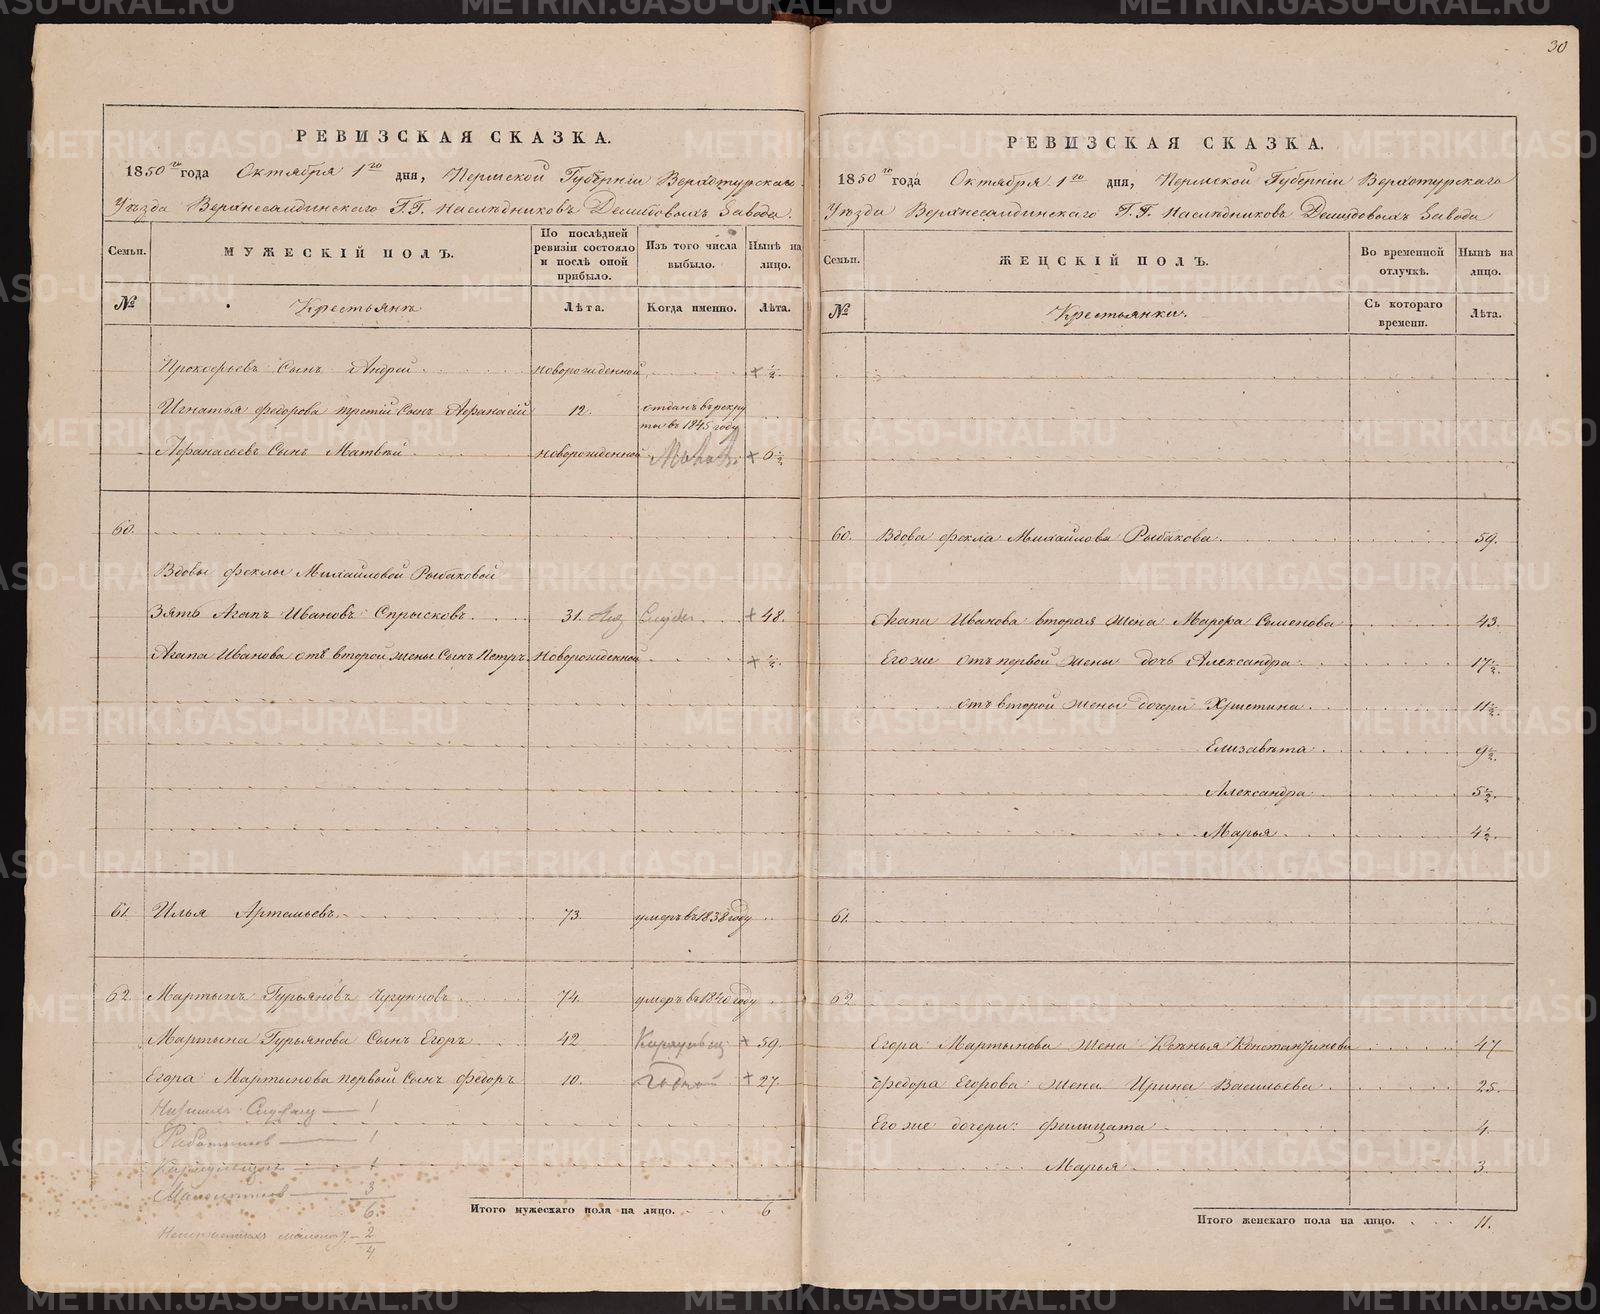 30
РЕВИЗСКАЯ СКАЗКА.
1850го года Октября 1го дня, Пермской Губерніи Верхотурскаго
Уѣзда Верхнесалдинскаго Г.Г. Наслѣдниковъ Демидовыхъ Завода.
Семьи.
МУЖЕСКІЙ ПОЛЪ.
По послѣдней ревизіи состояло и послѣ оной прибыло.
Изъ того числа выбыло.
Нынѣ на лицо.
№
Крестьянъ
Лѣта.
Когда именно.
Лѣта.
Прокофьевъ Сынъ Андрей новорожденной + ½.
Игнатья Федорова третій Сынъ Афанасій 12. отданъ въ рекру
ты въ 1845 году
Афанасьевъ Сынъ Матвѣй новорожденной + 6½
60.
Вдовы Феклы Михайловой Рыбаковой
Зять Агапъ Ивановъ Спрысковъ. 31. + 48.
Агапа Иванова отъ второй жены Сынъ Петръ. Новорожденной + ½.
61. Илья Артемьевъ. 73. умеръ въ 1838 году
62. Мартынъ Гурьяновъ Чугуновъ 74. умеръ въ 1840 году
Мартына Гурьянова Сынъ Егоръ 42 + 59.
Егора Мартынова первый Сынъ Федоръ 10. годной + 27.
1
Работников 1
1
Малолѣтков 3
6.
2
4
Итого мужескаго пола на лицо. 6
РЕВИЗСКАЯ СКАЗКА.
1850го года Октября 1го дня, Пермской Губерніи Верхотурскаго
Уѣзда Верхнесалдинскаго Г.Г. Наслѣдниковъ Демидовыхъ Завода
Семьи.
ЖЕНСКІЙ ПОЛЪ.
Во временной отлучкѣ.
Нынѣ на лицо.
№
Крестьянки.
Съ котораго времени.
Лѣта.
60. Вдова Фекла Михайлова Рыбакова. 59.
Агапа Иванова вторая жена Марфа Семенова 43.
Его же отъ первой жены дочь Александра 17½.
отъ второй жены дочери Христина 11½.
Елизавѣта 9½.
Александра 5½.
Марья 4½.
61.
62.
Егора Мартынова жена Ксенья Константинова 47
Федора Егорова жена Ирина Васильева 25.
Его же дочери: Филицата 4.
Марья 3.
Итого женскаго пола на лицо. 11.
METRIKI.GASO-URAL.RU